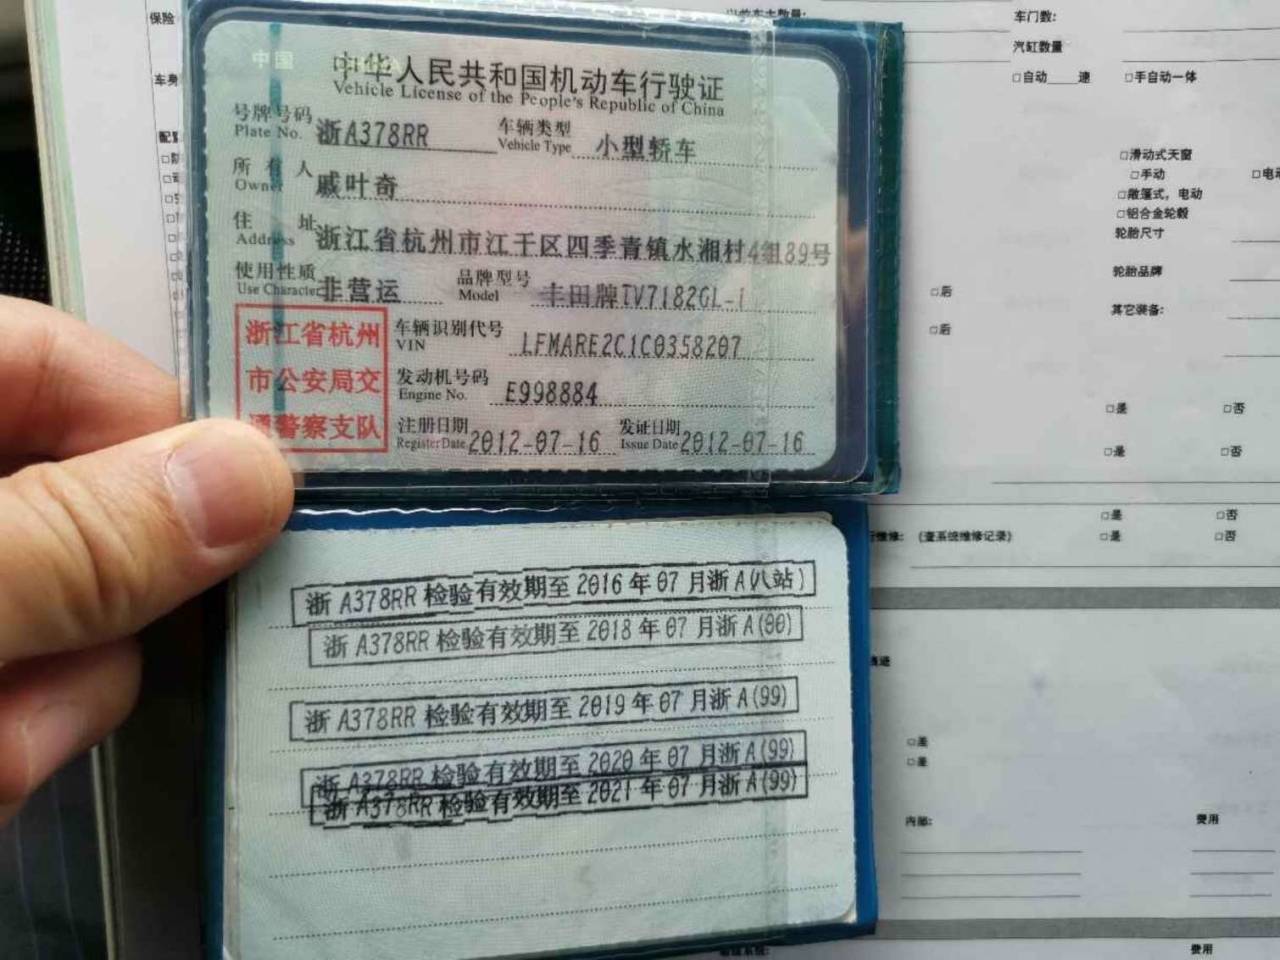 中国
中华人民共和国机动车行驶证
Vehicle License of the People's Republic of China
号牌号码 浙A378RR 车辆类型 小型轿车
Plate No. Vehicle Type
所有人 戚叶奇
Owner
住址 浙江省杭州市江干区四季青镇水湘村4组89号
Address
使用性质 非营运 品牌型号 丰田牌TV7182GL-i
Use Character Model
浙江省杭州
市公安局交
通警察支队
车辆识别代号 LFMARE2C1C0358207
VIN
发动机号码 E998884
Engine No.
注册日期 2012-07-16 发证日期 2012-07-16
Register Date Issue Date
浙A378RR检验有效期至2016年07月浙A(八站)
浙A378RR检验有效期至2018年07月浙A(00)
浙A378RR检验有效期至2019年07月浙A(99)
浙A378RR检验有效期至2020年07月浙A(99)
浙A378RR检验有效期至2021年07月浙A(99)
保险
车身
车门数:
汽缸数量
□自动 速 □手自动一体
□滑动式天窗
□手动 □电动
□敞篷式,电动
□铝合金轮毂
轮胎尺寸
轮胎品牌
□后
其它装备:
□后
□是 □否
□是 □否
□是 □否
(查系统维修记录) □是 □否
□是
□是
内部: 费用
费用